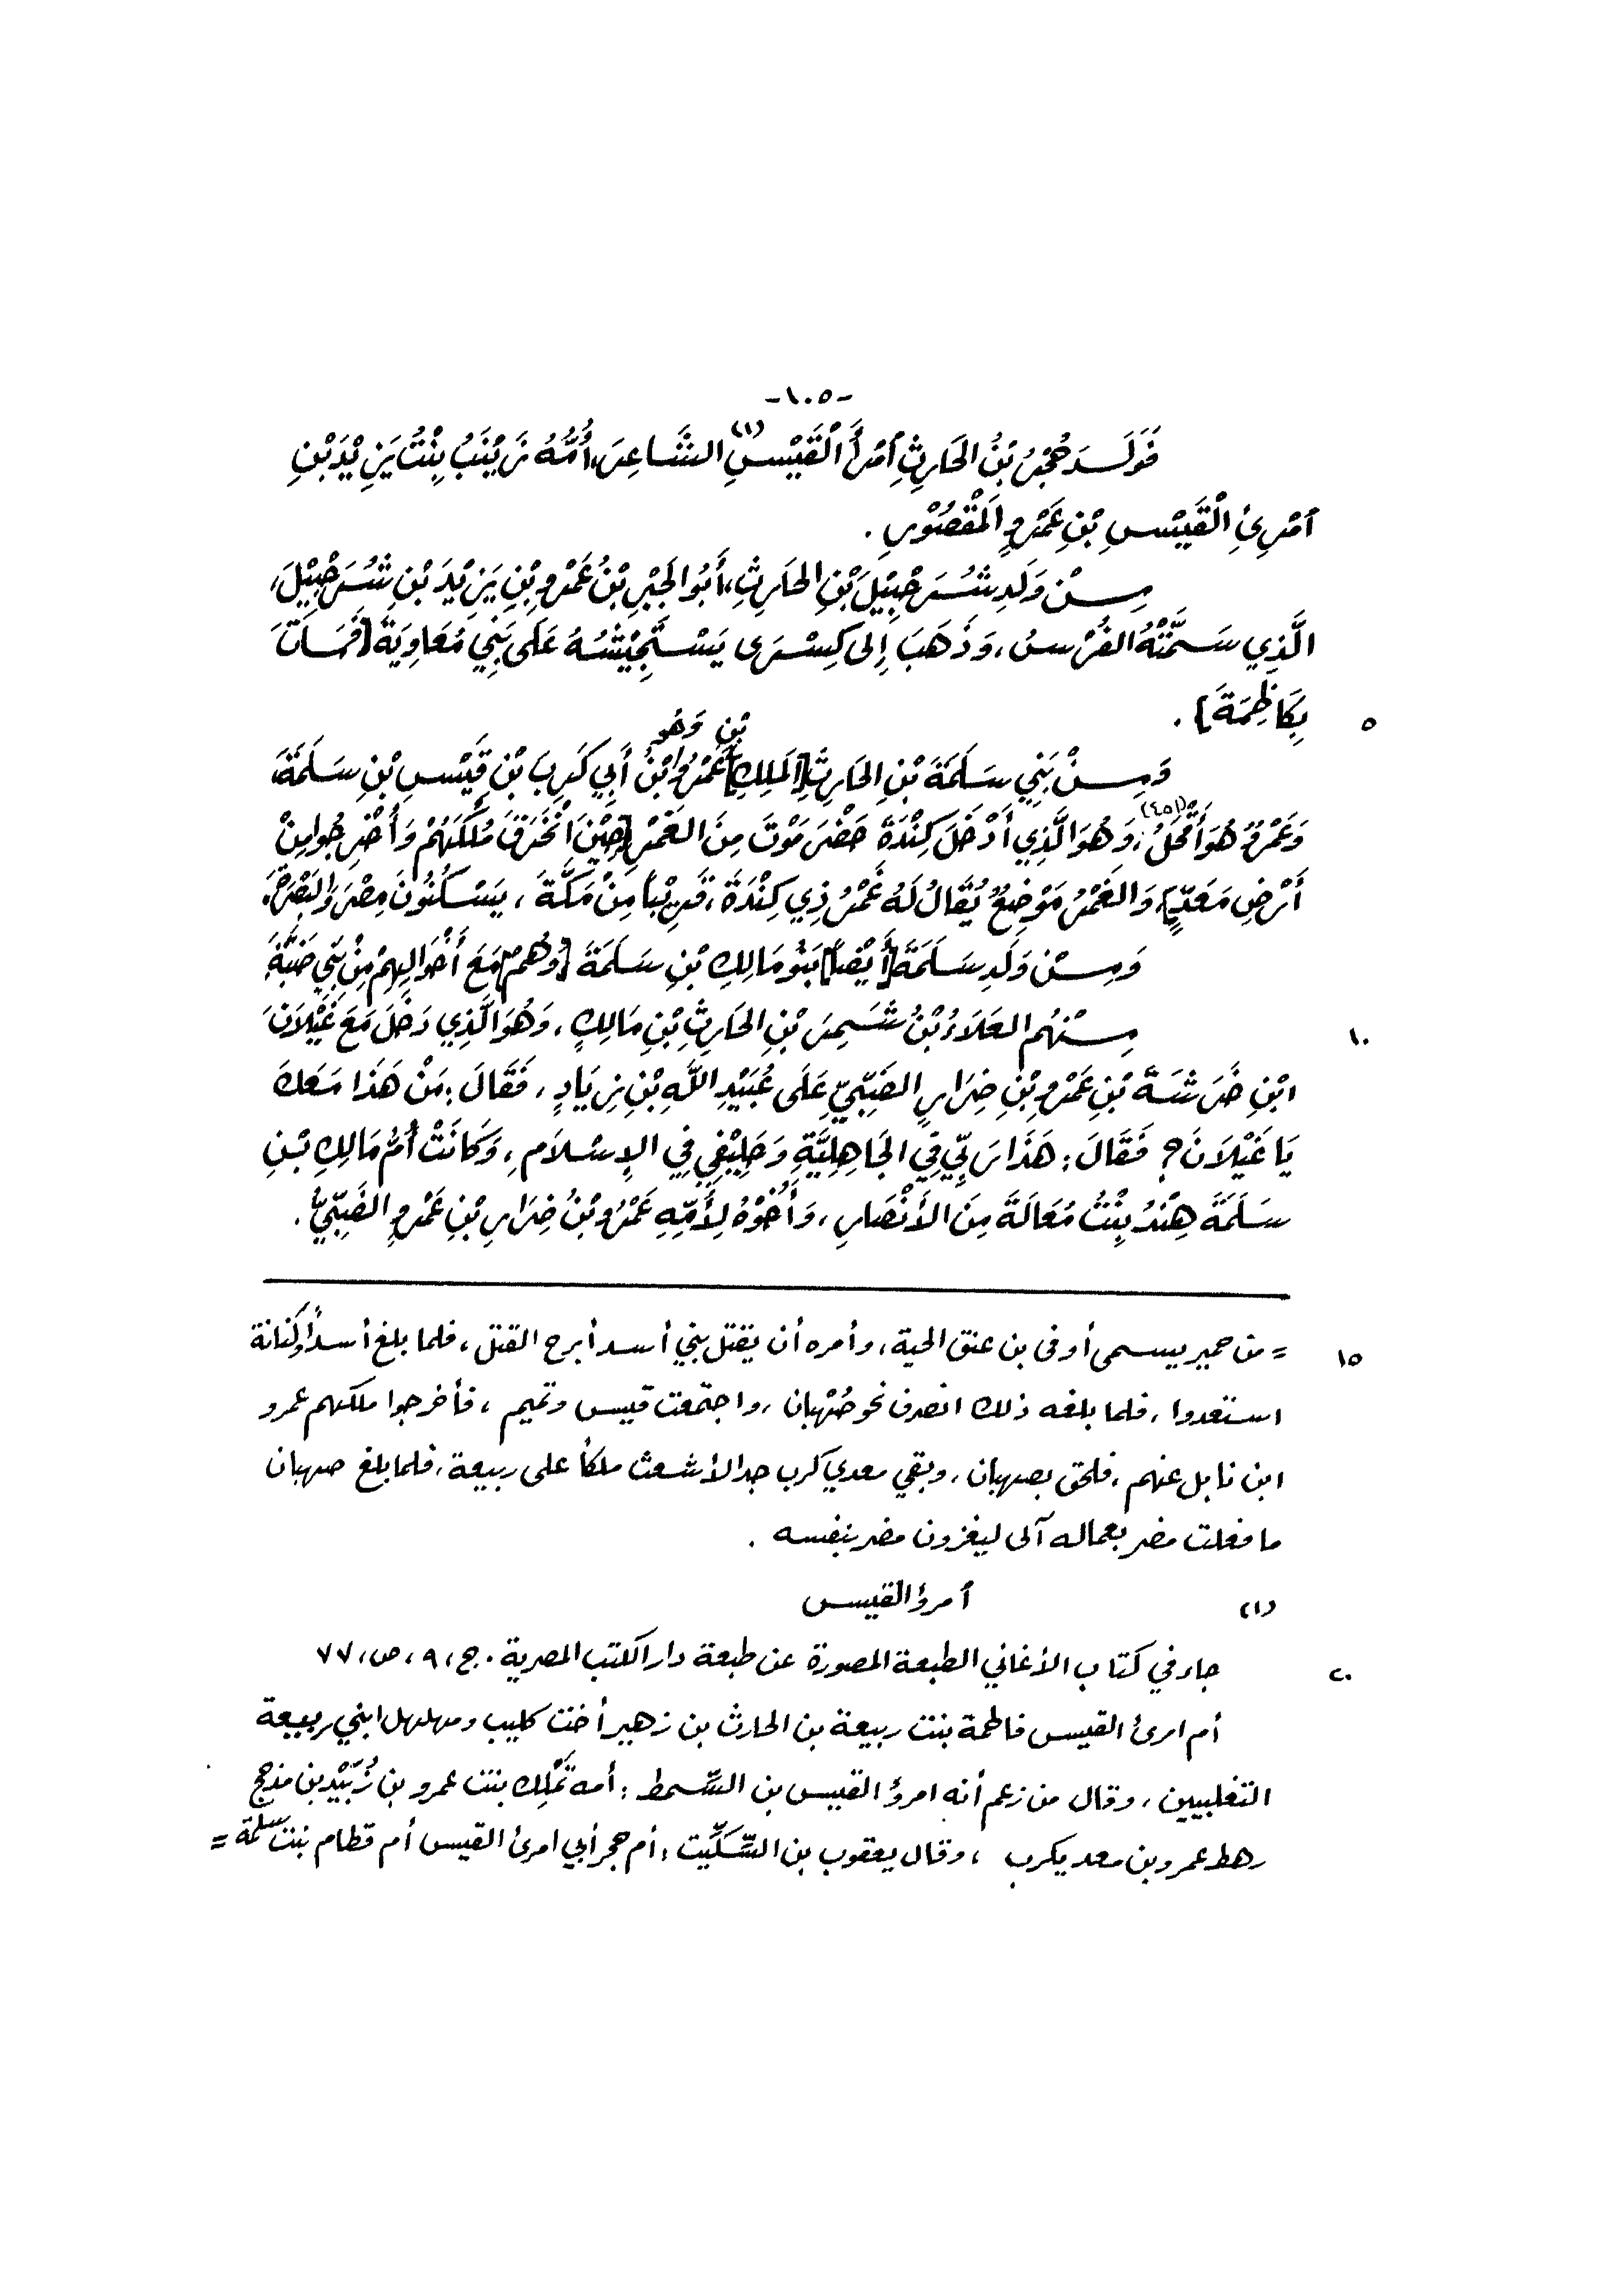 -١٠٥-
فَوَلَدَ حُجْرُ بْنُ الحَارِثِ آمْرَأَ الْقَيْسِ(١) الشَّاعِرَ، أُمُّهُ زَيْنَبُ بِنْتُ يَزِيْدَ بْنِ
آمْرِئِ الْقَيْسِ بْنِ عَمْرٍو الْمَقْصُوْرِ .
مِنْ وَلَدِ شُرَحْبِيْلَ بْنِ الحَارِثِ، أَبُو الجَبْرِ بْنُ عَمْرِو بْنِ يَزِيْدَ بْنِ شُرَحْبِيْلَ،
الَّذِي سَمَّتْهُ الفُرْسُ، وَذَهَبَ إِلى كِسْرَى يَسْتَجِيْشُهُ عَلَى بَنِي مُعَاوِيَةَ [فَمَاتَ
٥ بِكَاظِمَةَ] .
وَمِنْ بَنِي سَلَمَةَ بْنِ الحَارِثِ [المَلِكِ] عَمْرُو بْنِ وَهُوَ ابْنُ أَبِي كَرِبَ بْنِ قَيْسِ بْنِ سَلَمَةَ،
وَعَمْرٌو هُوَ أَقْحَلُ(٤٥١)، وَهُوَ الَّذِي أَدْخَلَ كِنْدَةَ حَضْرَمَوْتَ مِنَ الغَمْرِ [حِيْنَ انْخَرَقَ مُلْكَهُمْ وَأُخْرِجُوا مِنْ
أَرْضِ مَعَدٍّ]، وَالغَمْرُ مَوْضِعٌ يُقَالُ لَهُ غَمْرُ ذِي كِنْدَةَ، قَرِيْباً مِنْ مَكَّةَ، يَسْكُنُونَ مِصْرَ وَالبَصْرَةَ.
وَمِنْ وَلَدِ سَلَمَةَ [أَيْضاً] بَنُو مَالِكِ بْنِ سَلَمَةَ [وَهُمْ] مَعَ أَخْوَالِهِمْ مِنْ بَنِي ضَبَّةَ.
١٠ مِنْهُم العَلَاءُ بْنُ شَمِرَ بْنِ الحَارِثِ بْنِ مَالِكٍ، وَهُوَ الَّذِي دَخَلَ مَعَ غَيْلَانَ
ابْنِ خَرَشَةَ بْنِ عَمْرِو بْنِ ضِرَارٍ الضَّبِّيِّ عَلَى عُبَيْدِ اللَّهِ بْنِ زِيَادٍ، فَقَالَ: مَنْ هَذَا مَعَكَ
يَا غَيْلَانَ؟ فَقَالَ: هَذَا رَبِّي فِي الجَاهِلِيَّةِ وَحَلِيْفِي فِي الإِسْلَامِ، وَكَانَتْ أُمُّ مَالِكِ بْنِ
سَلَمَةَ هِنْدُ بِنْتُ مُعَالَةَ مِنَ الأَنْصَارِ، وَأَخُوْهُ لِأُمِّهِ عَمْرُو بْنُ ضِرَارِ بْنِ عَمْرٍو الضَّبِّيُّ .
١٥ = من حمير يسمى أوفى بن عنق الحية، وأمره أن يقتل بني أسد أبرح القتل، فلما بلغ أسداً وكنانة
استعدوا، فلما بلغه ذلك انصرف نحو صُهْبان، واجتمعت قيس وتميم، فأخرجوا ملكهم عمرو
ابن نابل عنهم، فلحق بصهبان، وبقي معدي كرب جد الأشعث ملكاً على ربيعة، فلما بلغ صهبان
ما فعلت مضر بعماله آلى ليغزون مضر بنفسه .
(١) آمرؤ القيس
٢٠ جاء في كتاب الأغاني الطبعة المصورة عن طبعة دار الكتب المصرية . ج، ٩، ص، ٧٧
أم امرئ القيس فاطمة بنت ربيعة بن الحارث بن زهير أخت كليب ومهلهل ابني ربيعة
التغلبيين، وقال من زعم أنه امرؤ القيس بن السِّمط: أمه تَمْلِك بنت عمرو بن زُبَيْد بن مذحج
رهط عمرو بن معد يكرب ، وقال يعقوب بن السِّكِّيت: أم حجر أبي امرئ القيس أم قطام بنت سلمة =